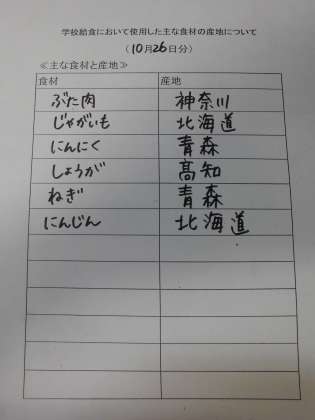 学校給食において使用した主な食材の産地について
(10月26日分)
≪主な食材と産地≫
食材 産地
ぶた肉 神奈川
じゃがいも 北海道
にんにく 青森
しょうが 高知
ねぎ 青森
にんじん 北海道